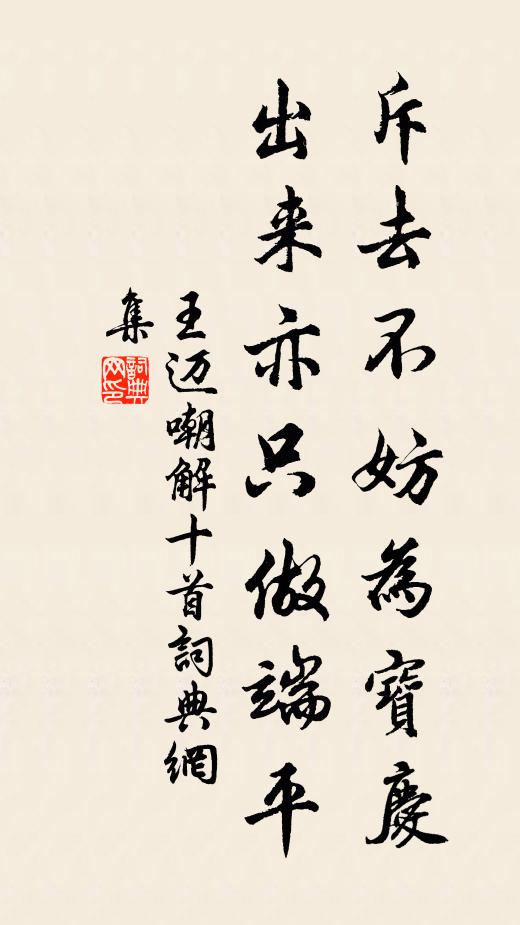 斥去不妨為寶慶
出来亦只做端平
王迈嘲解十首詞典網
集
詞典網印